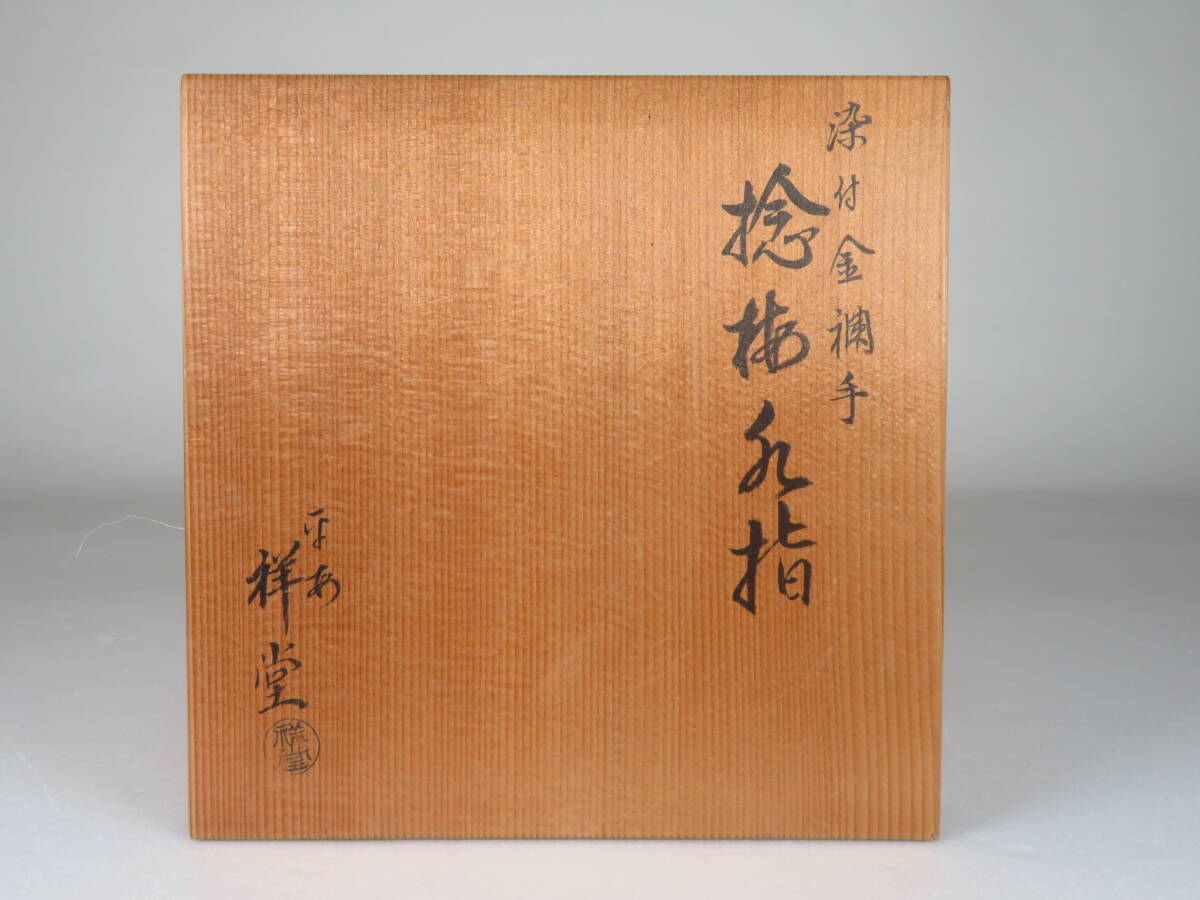 染付金襴手
捻梅水指
平安
祥堂
祥堂